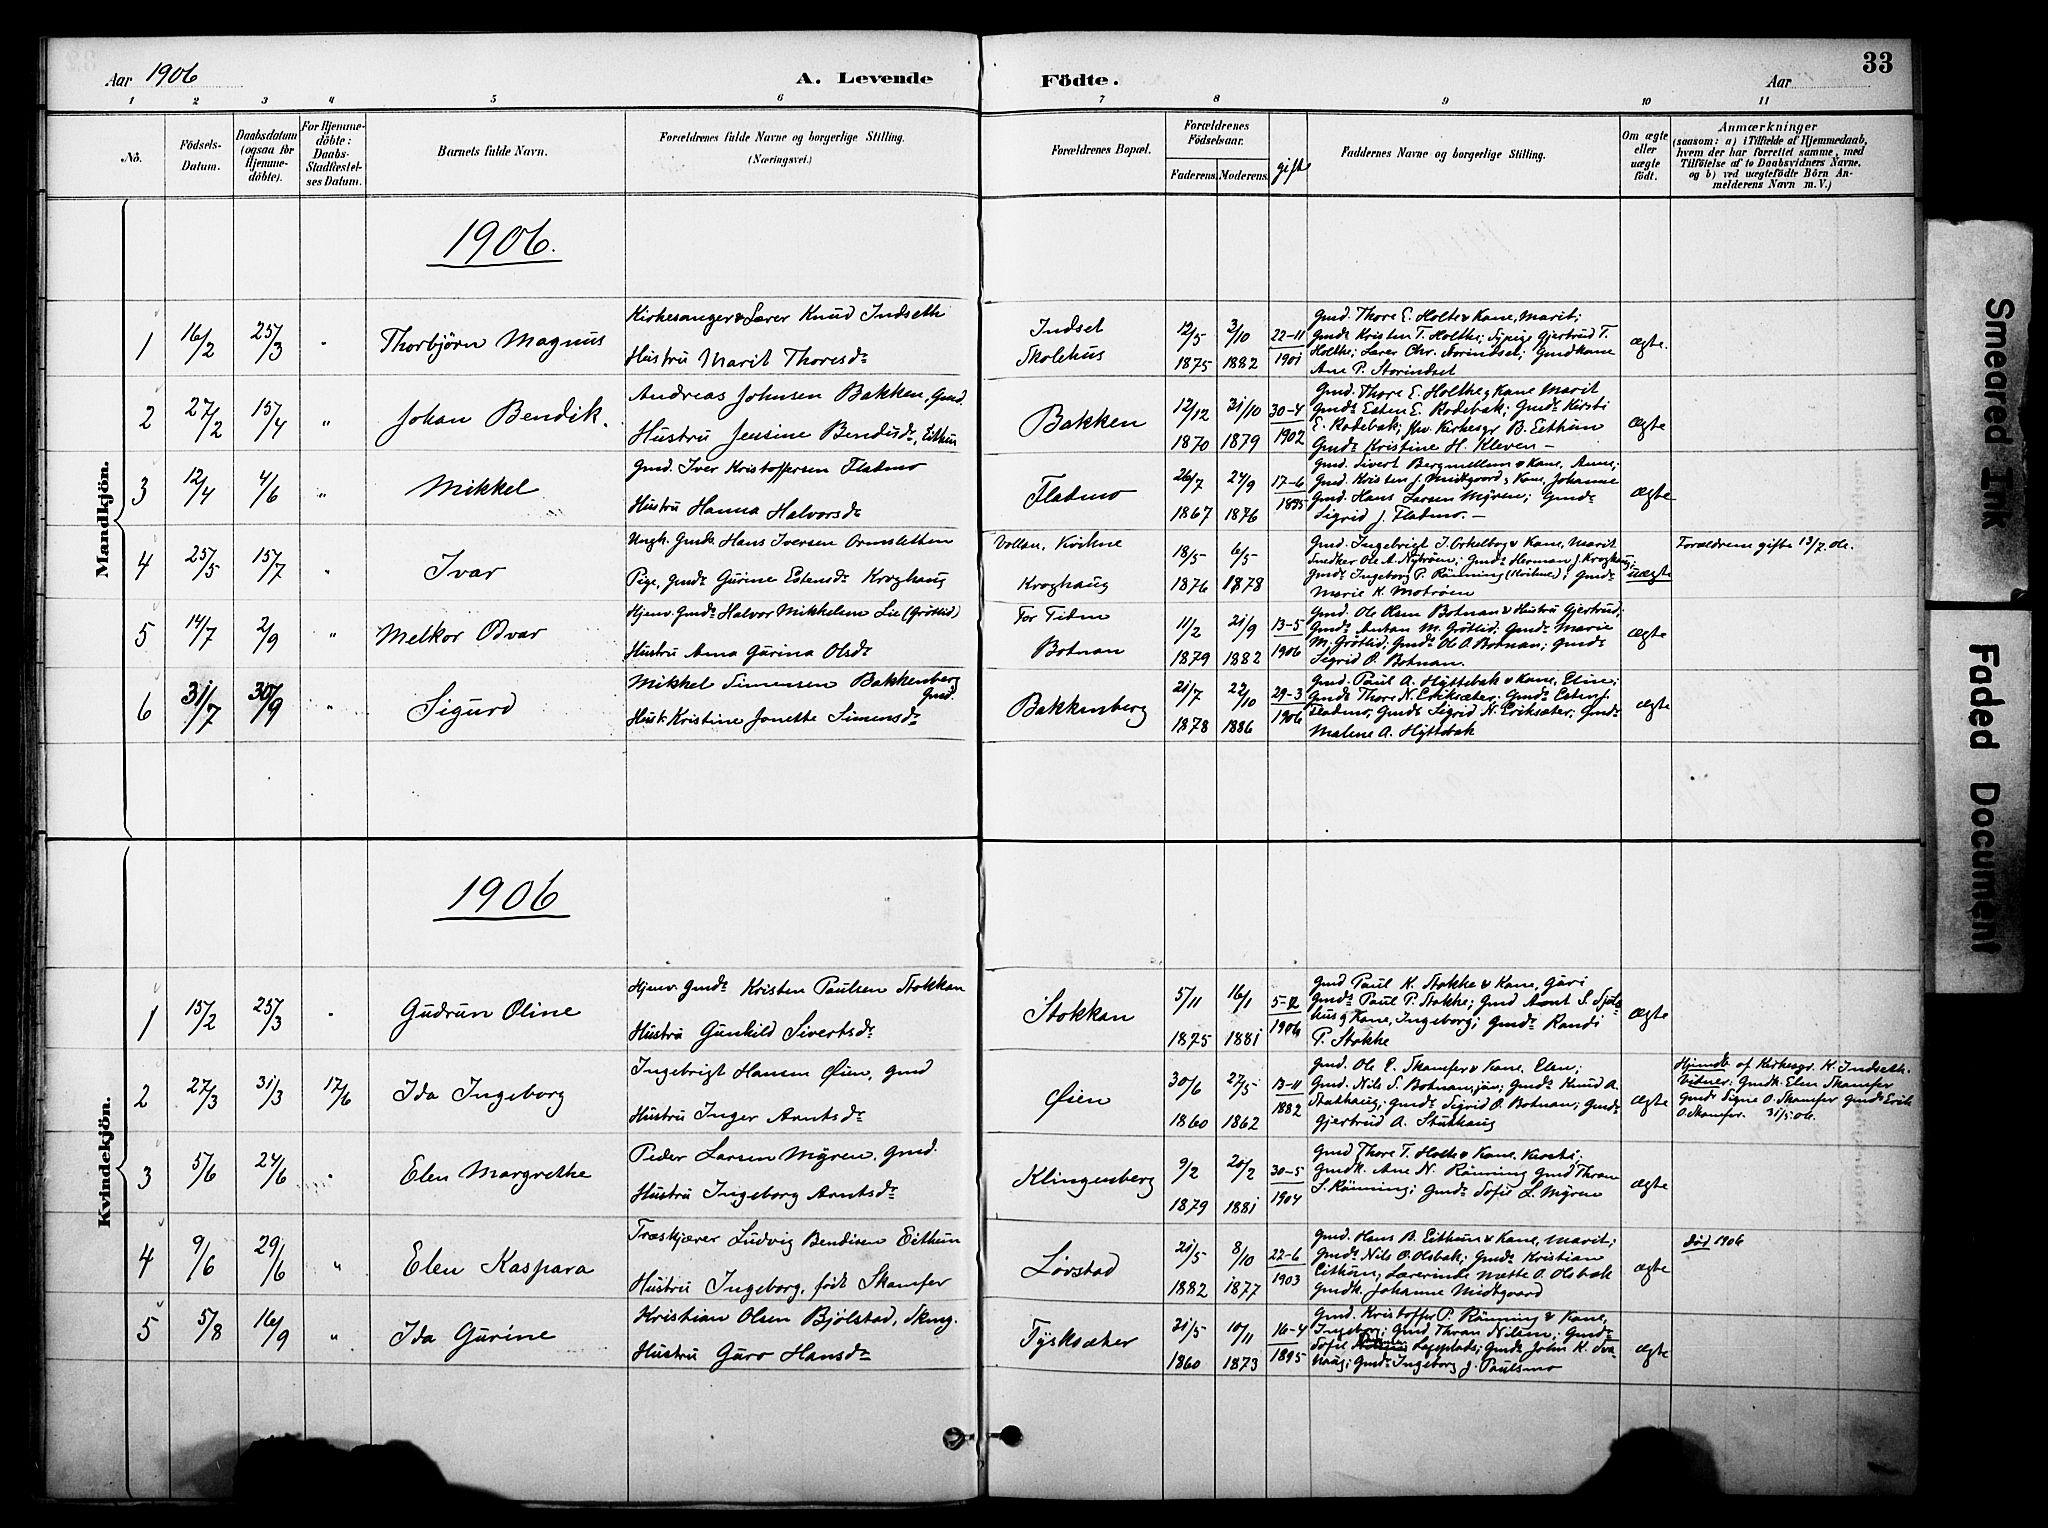 33
Aar 1906
A. Levende
Födte.
Aar
1 2 3 4 5 6 7 8 9 10 11
No.
Födsels-Datum.
Daabsdatum (ogsaa for Hjemme-döbte).
For Hjemme-döbte: Daabs-Stadfæstel-ses Datum.
Barnets fulde Navn.
Forældrenes fulde Navne og borgerlige Stilling.
(Næringsvei.)
Forældrenes Bopæl.
Forældrenes Födselsaar.
Faderens. Moderens.
gift
Faddernes Navne og borgerlige Stilling.
Om ægte eller uægte født.
Anmærkninger
(saasom: a) i Tilfælde af Hjemmedaab,
hvem der har forrettet samme, med
Tilföielse af to Daabsvidners Navne,
og b) ved uægtefödte Börn An-
melderens Navn m. V.)
Mandkjön.
1906.
1 16/2 25/3 " Thorbjörn Magnus
Kirkesanger & Lærer Knud Indseth
Hustru Marit Thoresdr
Indset
Skolehus
12/5 1875 3/10 1882 22-11 1901
Gmd. Thore E. Holte & Kone, Marit;
Gmds Kristen T. Holthe; Sypige Gjertrud T.
Holthe; Lærer Chr. Storindset; Gmdkone
Ane P. Storindset
ægte.
2 27/2 15/4 " Johan Bendik.
Andreas Johnsen Bakken, Gmd.
Hustru Jensine Bendiksdr, Eithun
Bakken
12/12 1870 31/10 1879 30-4 1902
Gmd. Thore E. Holthe & Kone Marit
Gmds Esten E. Rodebak; Gmdr Kirsti
E. Rodebak; Kirkesgr B. Eithun
Gmdr Kristine H. Kleven -
ægte
3 12/4 4/6 " Mikkel
Gmd. Iver Kristoffersen Flatmo
Hustru Hanna Halvorsdr
Flatmo
26/7 1867 24/9 1876 17-6 1895
Gmd. Sivert Bergmellem & Kone, Anne;
Gmd. Kristen J. Midtgaard & Kone, Johanne
Gmd. Hans Larsen Myren; Gmdr
Sigrid J. Flatmo. -
ægte
4 25/5 15/7 " Ivar
Ungk. Gmds. Hans Iversen Ormsletten
Pige, Gmdr Gurine Estensdr Kroghaug
Vollan, Kvikne
Kroghaug
18/5 1876 6/5 1878
Gmd. Ingebrigt J. Orkelbog & Kone, Marit
Snedker Ole A. Nyström; Gmds Herman J. Kroghaug;
Gmdr Ingeborg P. Rönning (Kvikne); Gmdr
Marie K. Moströen
uægte
Forældrene gifte 13/7.06.
5 14/7 2/9 " Melkor Odvar
Hjemv. Gmds Halvor Mikkelsen Lie (Gröttid)
Hustru Anna Gurina Olsdr
For Tiden
Botnan
11/2 1879 21/9 1882 13-5 1906
Gmd. Ole Olsen Botnan & Hustru Gjertrud;
Gmds Antan M. Gröttid; Gmdr Marie
M. Gröttid; Gmds Ole O. Botnan; Gmdr
Sigrid O. Botnan.
ægte
6 31/7 30/9 " Sigurd
Mikkel Simensen Bakkenberg Gmd.
Hust. Kristine Jonette Simensdr
Bakkenberg
21/7 1878 22/10 1886 29-3 1906
Gmd. Paul A. Hyttebak & Kone, Elin;
Gmds Thore N. Eriksæter; Gmds Esten J.
Flatmo; Gmdr Sigrid N. Eriksæter; Gmdr
Malene A. Hyttebak
ægte
Kvindekjön.
1906
1 15/2 25/3 " Gudrun Oline
Hjemv. Gmds Kristen Paulsen Stokkan
Hustru Gunhild Sivertsdr
Stokkan
5/11 1875 16/1 1881 5-12 1906
Gmd Paul K. Stokke & Kone, Guri
Gmds Paul P. Stokke; Gmd Arnt S. Sjöla-
hus & Kone, Ingeborg; Gmdr Randi
P. Stokke
ægte
2 27/3 31/3 17/6 Ida Ingeborg
Ingebrigt Hansen Øien, Gmd
Hustru Inger Arntsdr
Øien
30/6 1860 27/5 1862 13-11 1882
Gmd. Ole E. Skamfer & Kone, Elen;
Gmd. Nils S. Botnan, jun; Gmds Knud A.
Stuthaug; Gmdr Sigrid O. Botnan; Gmdr
Gjertrud A. Stuthaug
ægte
Hjmdbt af Kirkesgr. K. Indseth.
Vidner: Gmdk. Elen Skamfer
Gmdr Signe O. Skamfer Gmds Erik
O. Skamfer. 31/5.06.
3 5/6 24/6 " Elen Margrethe
Peder Larsen Myren, Gmd.
Hustru Ingeborg Arntsdr
Klingenberg
9/2 1879 20/2 1881 30-5 1904
Gmd Thore T. Holte & Kone, Kirsti;
Gmdk. Ane N. Rönning Gmd Thran
S. Rönning; Gmdr Sofie L. Myren
ægte
4 9/6 29/6 " Elen Kaspara
Træskjærer Ludvig Bendiksen Eithun
Hustru Ingeborg, födt Skamfer
Løvstad
21/5 1882 8/10 1877 22-6 1903
Gmd. Hans B. Eithun & Kone, Marit;
Gmds Nils O. Olsbak; Gmds Kristian
Eithun; Lærerinde Mette O. Olsbak
Gmdk. Johanne Midtgaard
ægte
död 1906
5 5/8 16/9 " Ida Gurine
Kristian Olsen Bjölstad, Skmg.
Hustru Guro Hansdr
Tysksæter
21/5 1860 10/11 1873 16-4 1895
Gmd. Kristoffer P. Rönning & Kone,
Ingeborg; Gmd Thran Nilsen; Gmdr
Sofie Lageplads; Gmds John K. Sva-
haug; Gmdr Ingeborg J. Paulsmo
ægte
Smeared Ink
Faded Document